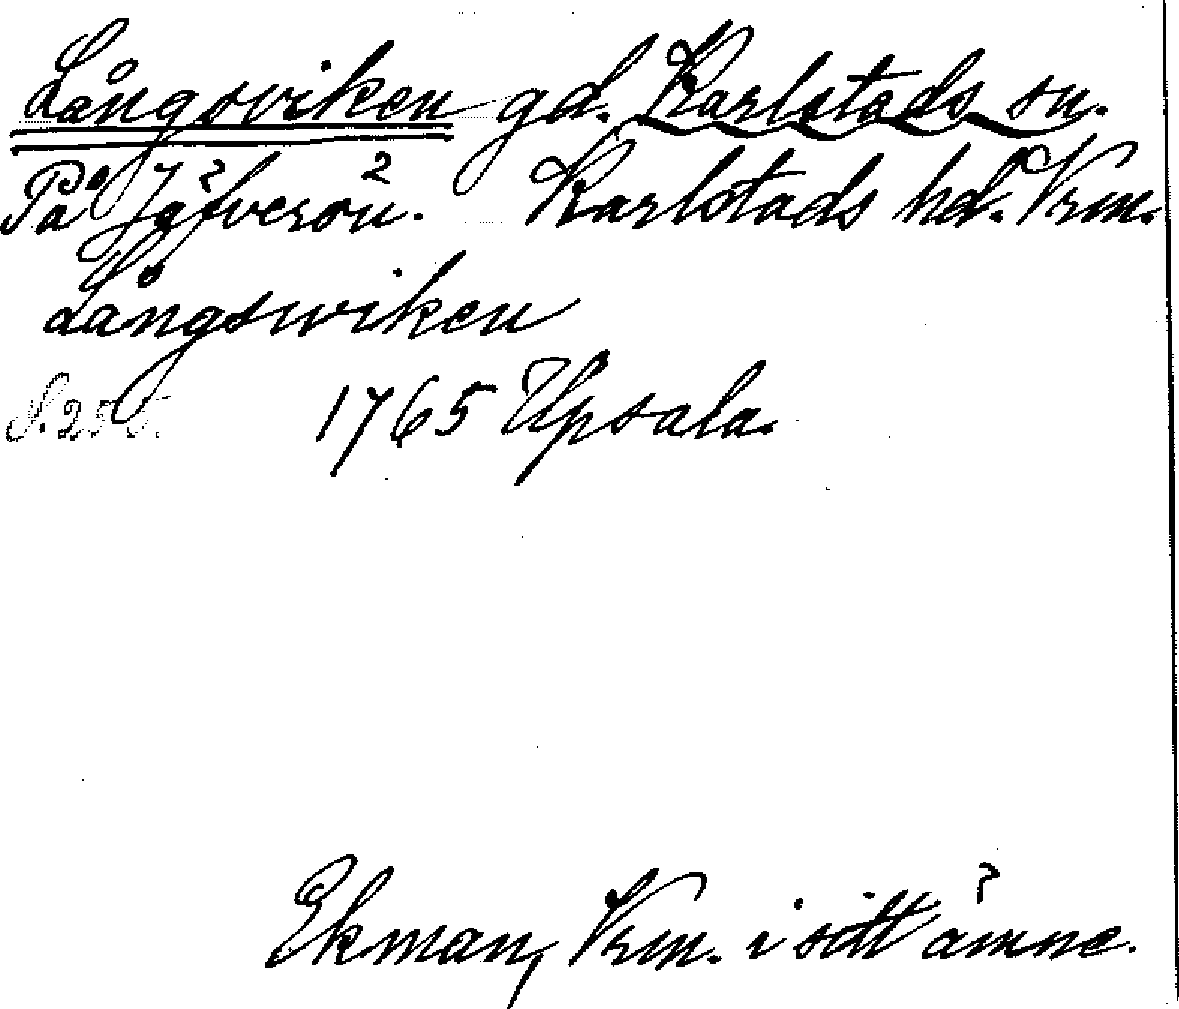 Långsviken gd. Karlstads sn.
På Jäfverön. Karlstads hd. Vrm.
Långswiken
S. 255. 1765 Upsala.
Ekman, Vrm. i sitt ämne.